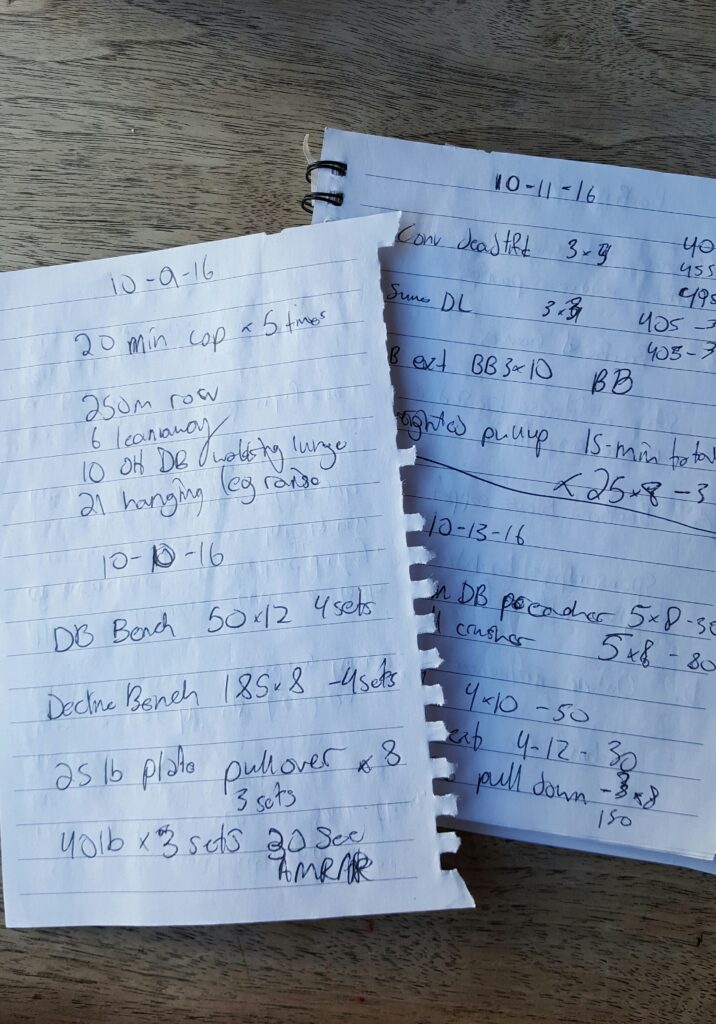 10-9-16
20 min cap x 5 times
250m row
6 leanaway
10 OH DB walking lunge
21 hanging leg raise
10-10-16
DB Bench 50x12 4 sets
Decline Bench 185x8 -4 sets
25 lb plate pullover x 8
3 sets
40lb x 3 sets 30 Sec
AMRAP
10-11-16
Conv deadlift 3x 40
455
495
Sumo DL 3x3 405 -3
405-3
B ext BB 3x10 BB
ighted pullup 15-min total
x 25x8 -3
10-13-16
n DB preacher 5x8 -30
l crusher 5x8 - 80
4x10 -50
ext 4-12 - 30
pull down -3x8
150